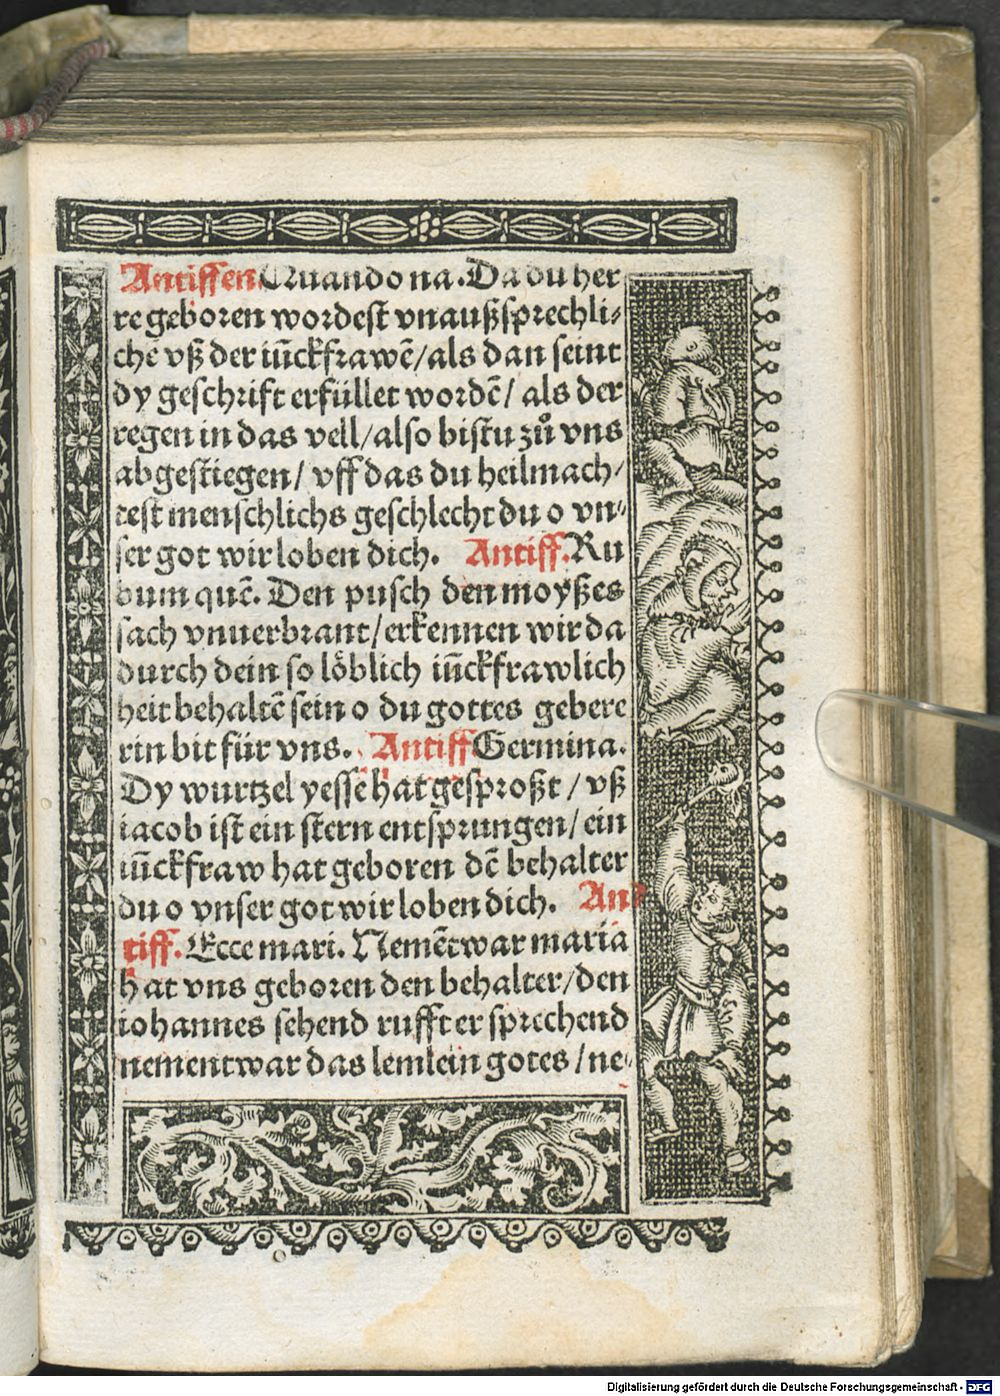 Antiffen. Quando na. Da du her
re geboren wordest vnaußsprechli⸗
che vß der iūckfrawē/als dan seint
dy geschrift erfüllet wordē/ als der
regen in das vell/also bistu zů vns
abgestiegen/ vff das du heilmach⸗
test menschlichs geschlecht du o vn⸗
ser got wir loben dich. Antiff. Ru
bum quē. Den pusch den moyßes
sach vnuerbrant/erkennen wir da
durch dein so löblich iūckfrawlich
heit behaltē sein o du gottes gebere
rin bit für vns. Antiff Germina.
Dy wurtzel yesse hat gesproßt / vß
iacob ist ein stern entsprungen/ein
iūckfraw hat geboren dē behalter
du o vnser got wir loben dich. An⸗
tiff. Ecce mari. Nemēt war maria
hat vns geboren den behalter/den
iohannes sehend rufft er sprechend
nement war das lemlein gotes /ne⸗
Digitalisierung gefördert durch die Deutsche Forschungsgemeinschaft - DFG